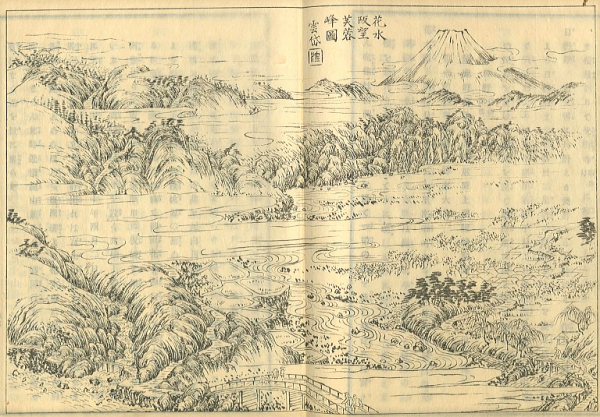 花水
阪望
芙蓉
峰圖
雲岱